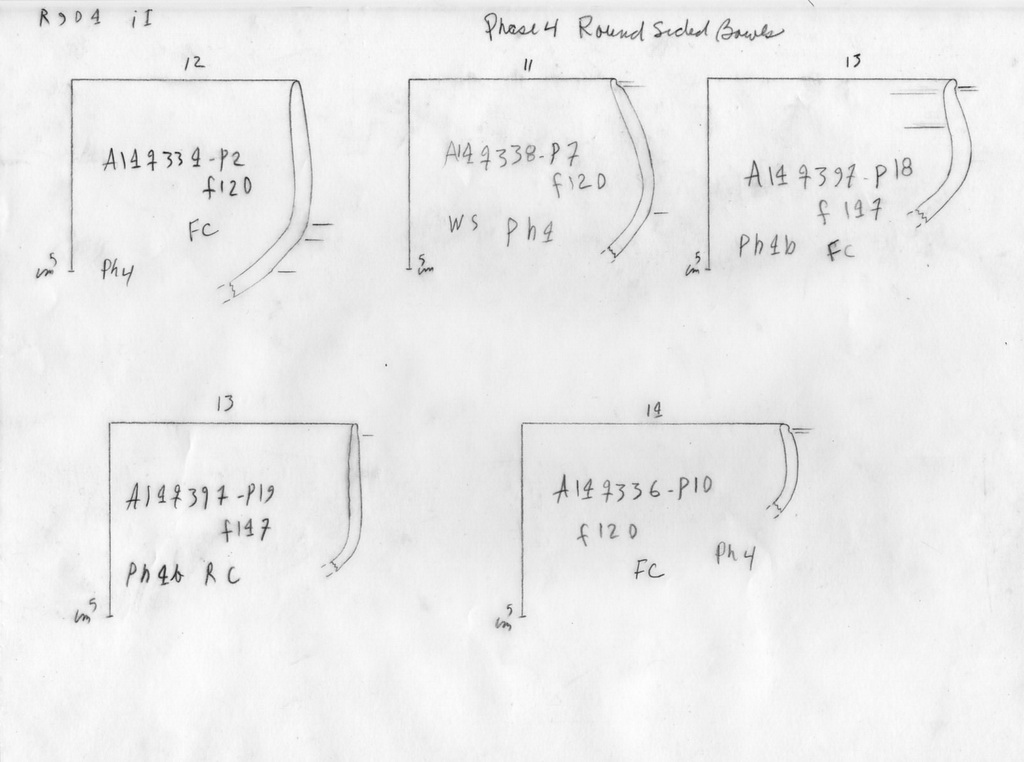 R904 iI
Phase 4 Round Sided Bowls
12
A147334-P2
f120
FC
Ph4
5
cm
11
A147338-P7
f120
WS Ph4
5
cm
13
A147397-P18
f147
Ph4b FC
5
cm
13
A147397-P19
f147
Ph4b RC
5
cm
14
A147336-P10
f120
FC
Ph4
5
cm